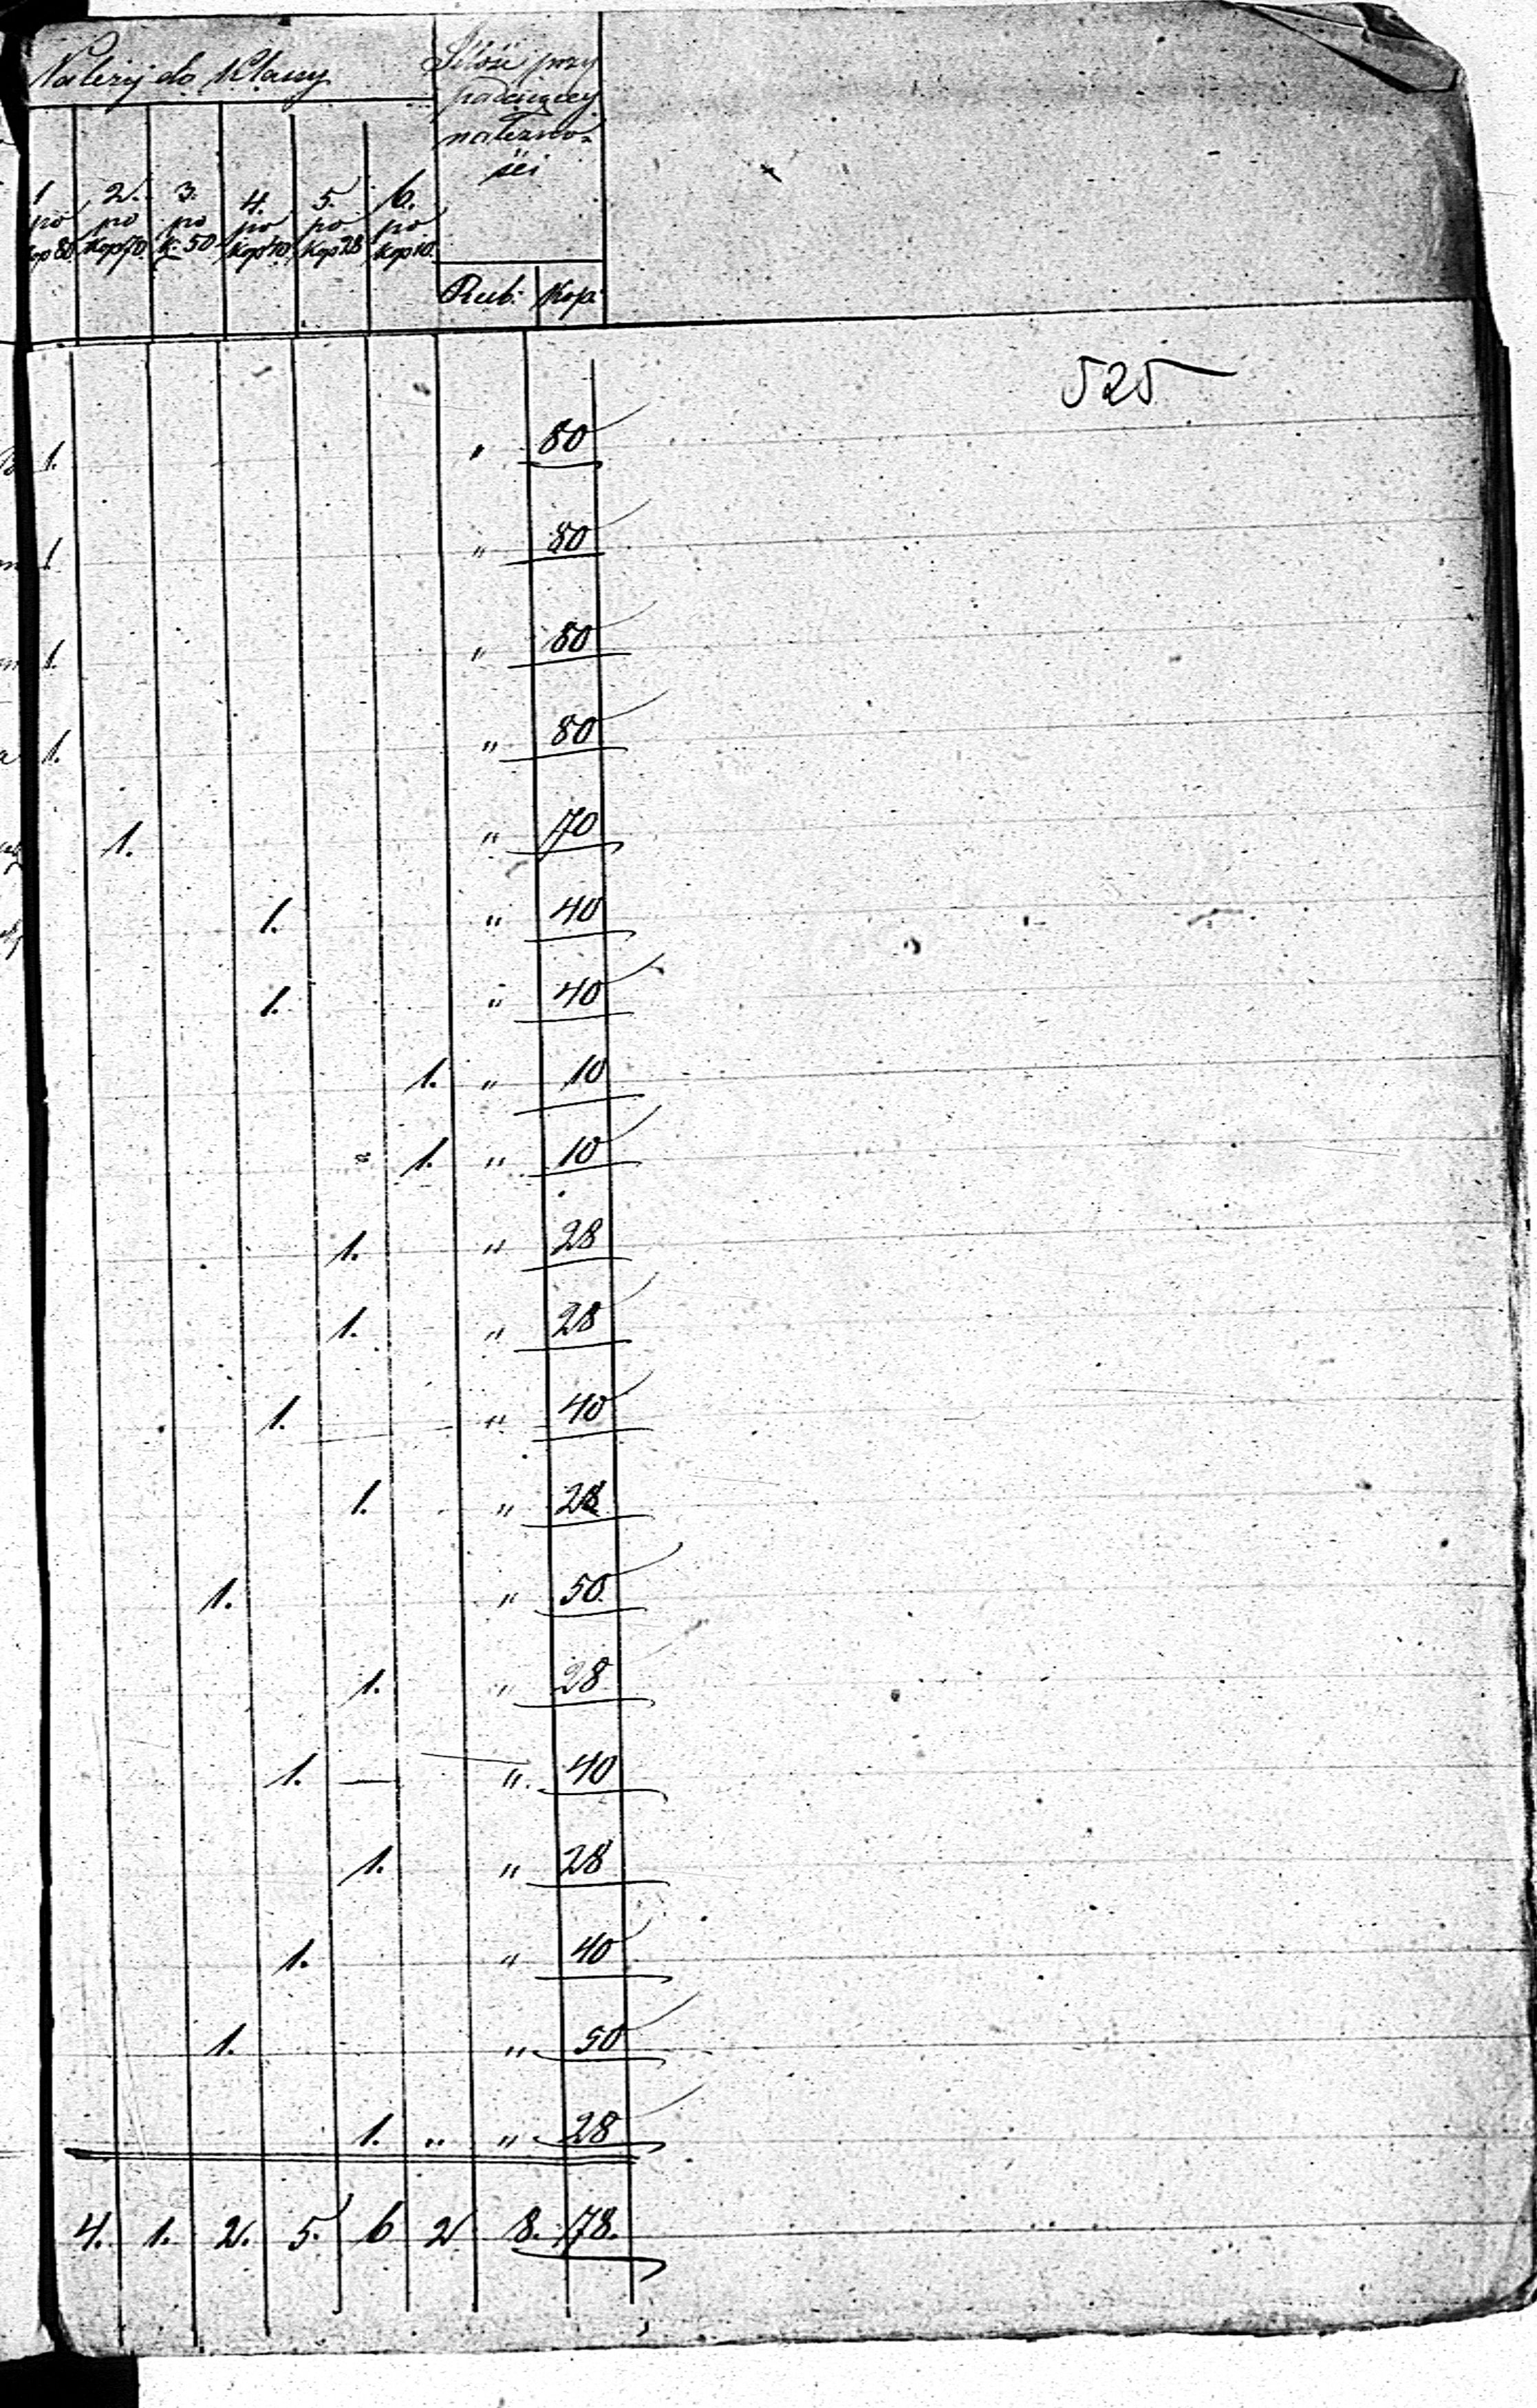 Należy do Klassy
Ilość przy
padaiącey
należno-
ści
1 2. 3. 4. 5. 6.
po po po po po po
Kop 80 Kop 70 K. 50 Kop 40 Kop 28 Kop 10.
Rub. Kop.
525
1. " 80
1. " 80
1. " 80
1. " 80
1. " 70
1. " 40
1. " 40
1. " 10
1. " 10
1. " 28
1. " 28
1. " 40
1. " 28
1. " 50.
1. " 28
1. — " 40
1. " 28
1. " 40
1. " 50
1. " " 28
4. 1. 2. 5. 6 2 8. 78.